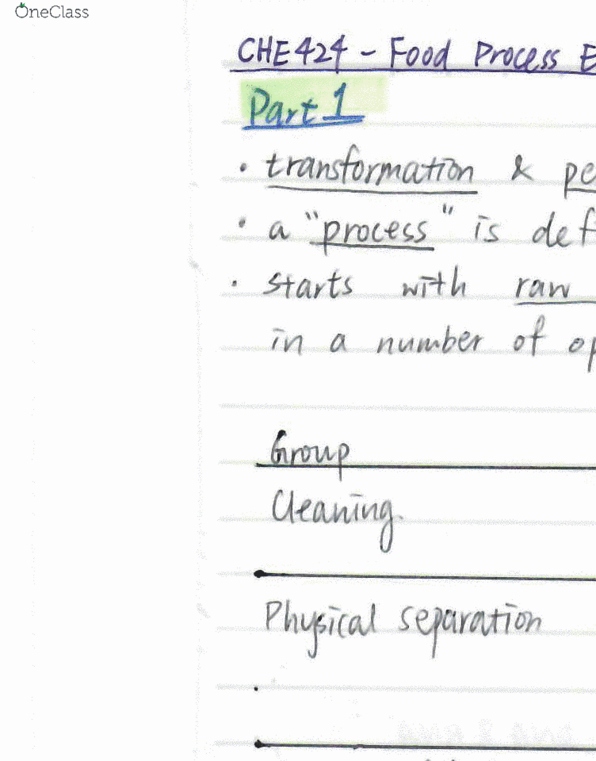 OneClass
CHE424 - Food Process E
Part 1
• transformation & pe
• a "process" is def
• starts with raw
in a number of op
Group
Cleaning.
Physical separation